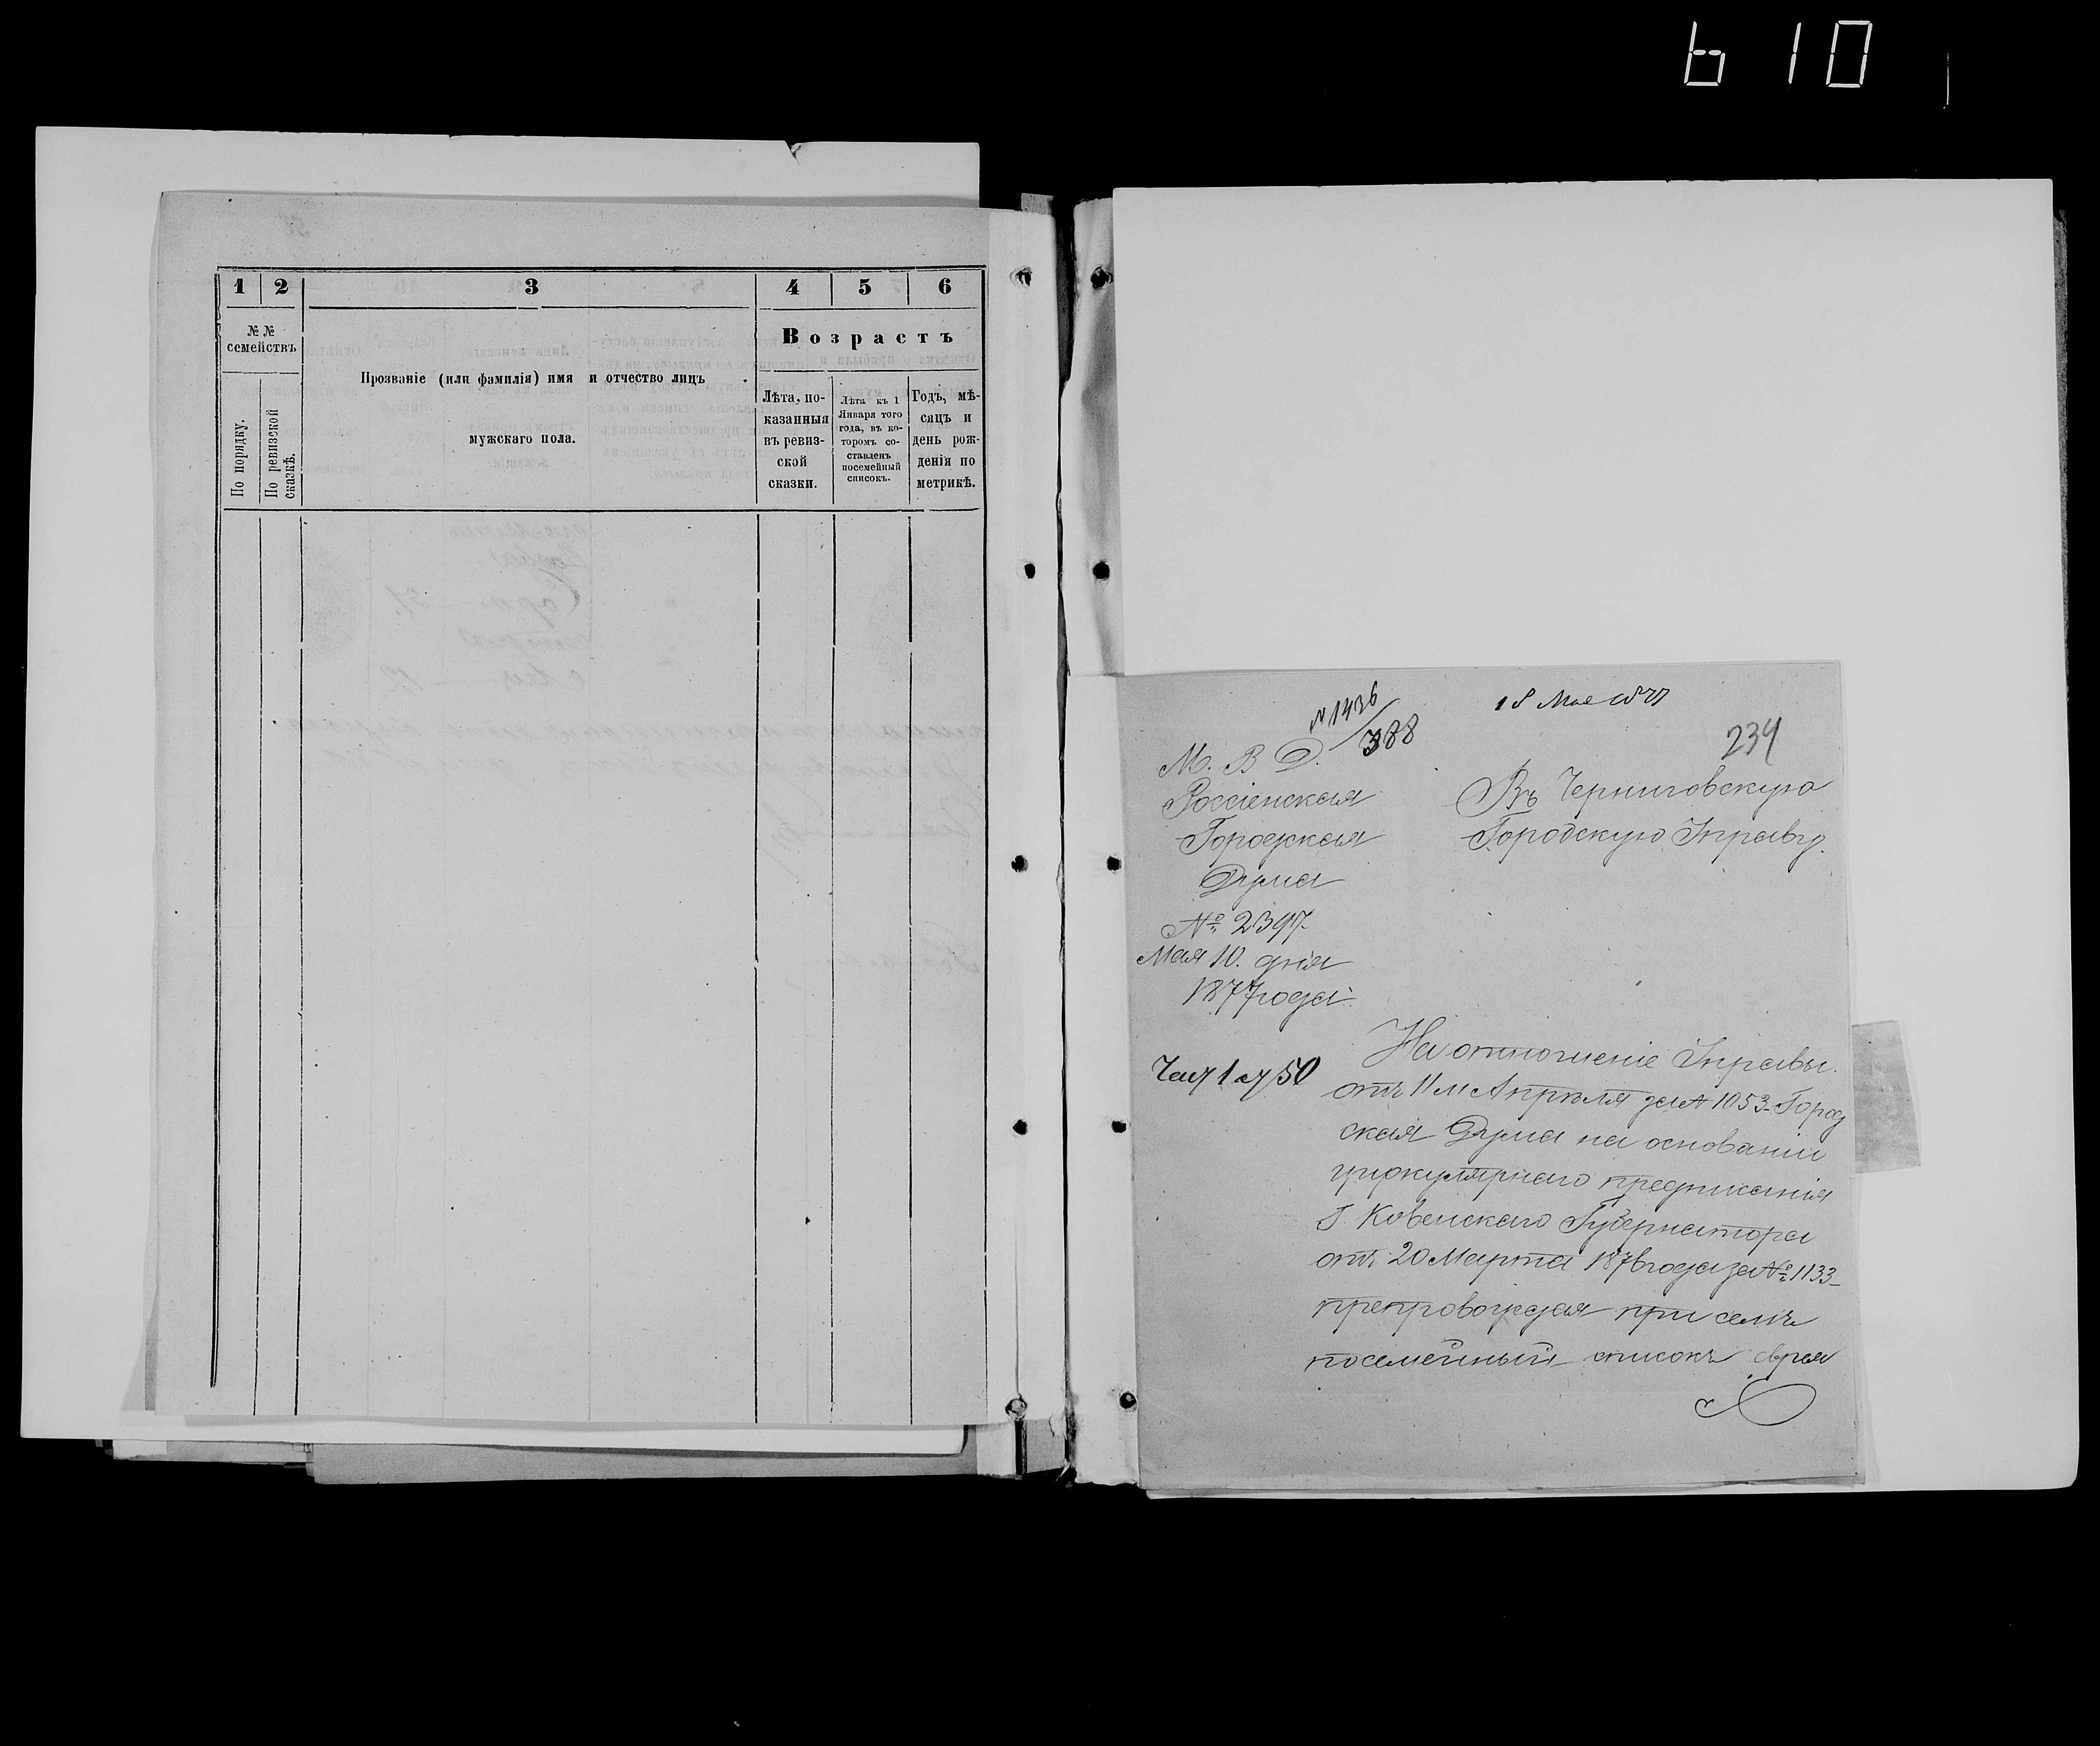 610
1 2 3 4 5 6
№ №
семействъ
По порядку.
По ревизской
сказкѣ.
Прозваніе (или фамилія) имя и отчество лицъ
мужскаго пола.
Возрастъ
Лѣта, по-
казанныя
въ ревиз-
ской
сказки.
Лѣта къ 1
Января того
года, въ ко-
торомъ со-
ставленъ
посемейный
списокъ.
Годъ, мѣ-
сяцъ и
день рож-
денія по
метрикѣ.
№ 1436
388
18 Мая 1877
234
М. В. Д.
Россіенская
Городская
Дума
№ 2397
Мая 10. дня
1877 года
Въ Черниговскую
Городскую Управу.
На отношеніе Управы
отъ 11 Апрѣля за № 1053 Город
ская Дума на основаніи
циркулярнаго предписанія
Г. Ковенскаго Губернатора
отъ 20 Марта 1876 года за № 1133
препровождая при семъ
посемейный списокъ еврея